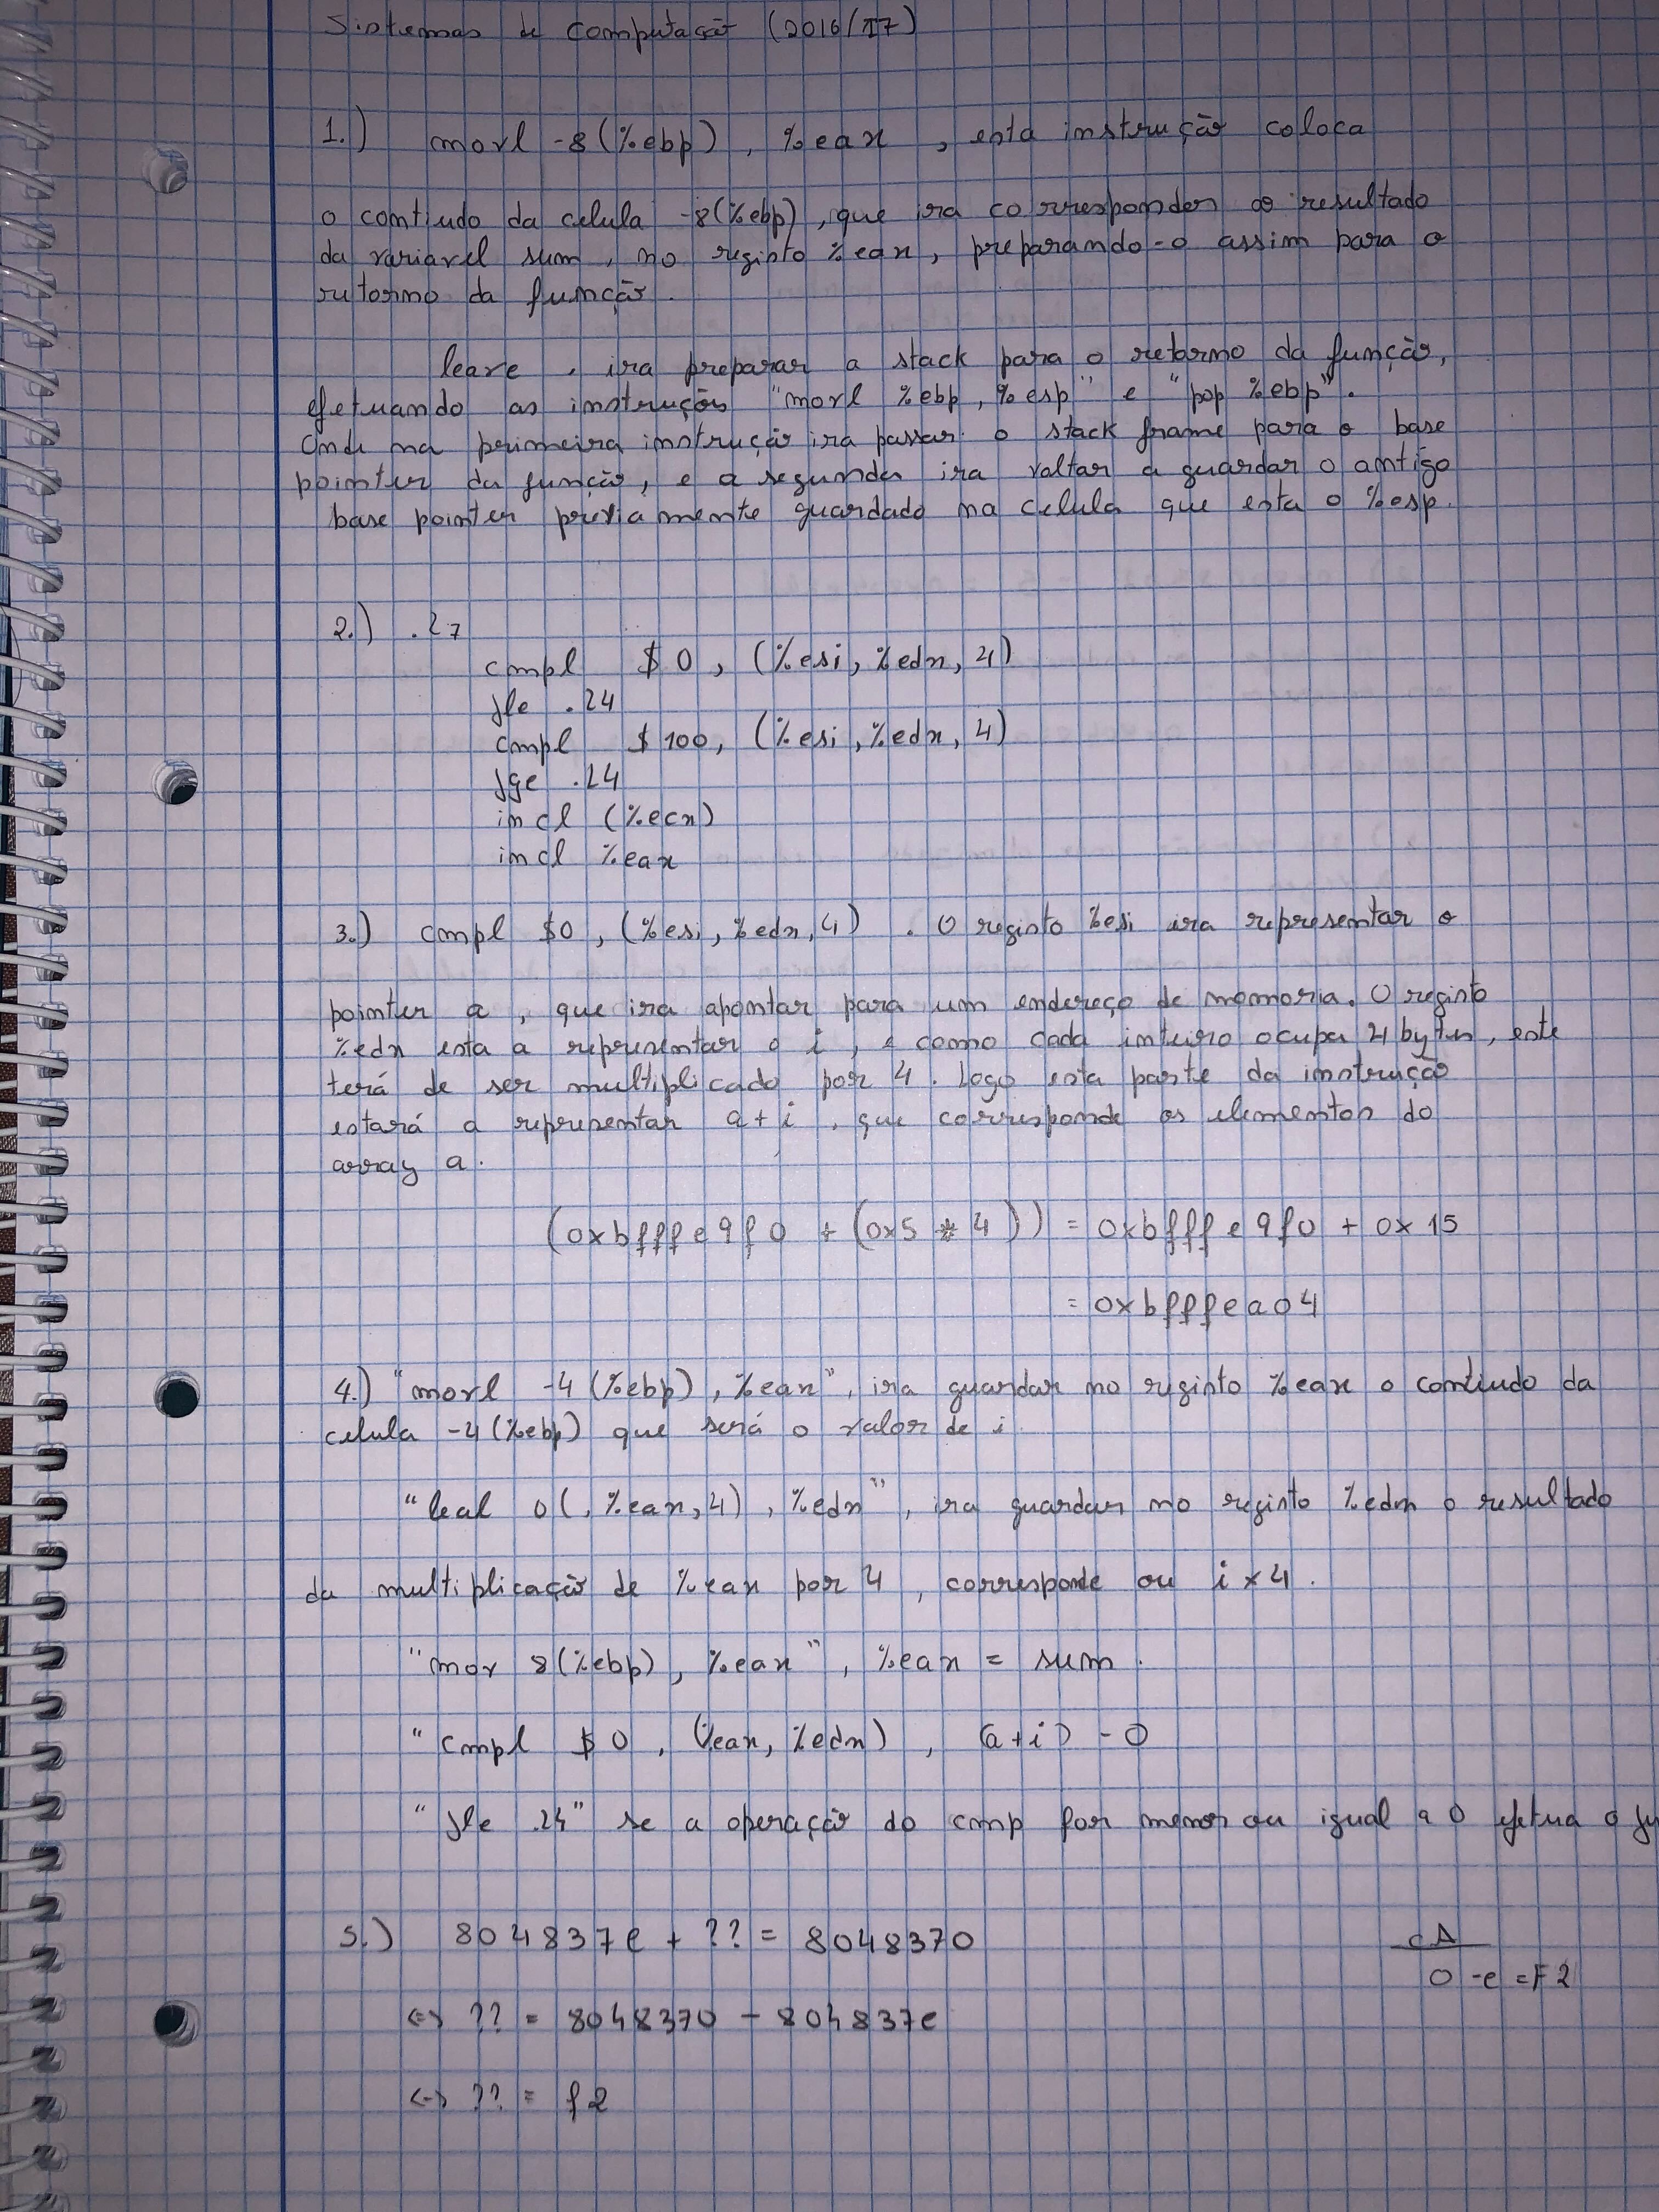 Sistemas de computação (2016/17)
1.) movl -8(%ebp), %eax , esta instrução coloca
o contiudo da celula -8(%ebp), que ira corresponder ao resultado
da variavel sum, no registo %eax, preparando-o assim para o
retorno da função.
leave , ira preparar a stack para o retorno da função,
efetuando as instruções "movl %ebp, %esp" e "pop %ebp".
Onde na primeira instrução ira passar o stack frame para o base
pointer da função, e a segunda ira voltar a guardar o antigo
base pointer previamente guardado na celula que esta o %esp.
2.) .L7
cmpl $0, (%esi, %edx, 4)
jle .L4
cmpl $100, (%esi, %edx, 4)
jge .L4
incl (%ecx)
incl %eax
3.) cmpl $0, (%esi, %edx, 4) . O registo %esi ira representar o
pointer a , que ira apontar para um endereço de momoria. O registo
%edx esta a representar o i, e como cada inteiro ocupa 4 bytes, este
terá de ser multiplicado por 4. Logo esta parte da instrução
estará a representar a+i , que corresponde os elementos do
array a.
(0xbfffe9f0 + (0x5 * 4)) = 0xbfffe9f0 + 0x15
= 0xbfffea04
4.) "movl -4(%ebp), %eax", ira guardar no registo %eax o contiudo da
celula -4(%ebp) que será o valor de i.
"leal 0(,%eax,4), %edx", ira guardar no registo %edx o resultado
da multiplicação de %eax por 4 , corresponde ou i x 4.
"mov 8(%ebp), %eax", %eax = sum.
"cmpl $0, (%eax, %edx) , (a+i) - 0
"jle .L4" se a operação do cmp for menor ou igual a 0 efetua o
5.) 804837e + ?? = 8048370
<=> ?? = 8048370 - 804837e
0 -e = F2
<=> ?? = f2